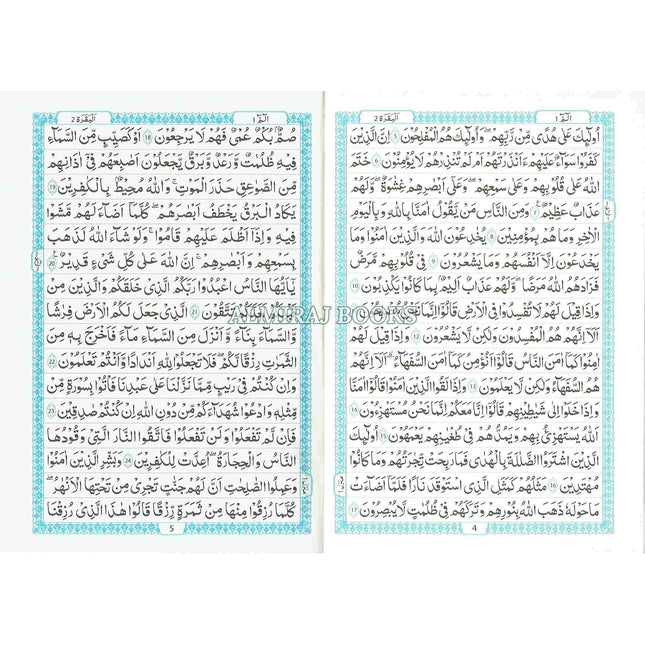 البقرة ٢
الٓمّٓ ١
اُولٰٓئِكَ عَلٰى هُدًى مِّنْ رَّبِّهِمْ ۗ وَاُولٰٓئِكَ هُمُ الْمُفْلِحُوْنَ ۝5 اِنَّ الَّذِيْنَ
كَفَرُوْا سَوَآءٌ عَلَيْهِمْ ءَاَنْذَرْتَهُمْ اَمْ لَمْ تُنْذِرْهُمْ لَا يُؤْمِنُوْنَ ۝6 خَتَمَ
اللّٰهُ عَلٰى قُلُوْبِهِمْ وَعَلٰى سَمْعِهِمْ ۗ وَعَلٰٓى اَبْصَارِهِمْ غِشَاوَةٌ ۖ وَّلَهُمْ
عَذَابٌ عَظِيْمٌ ۝7 وَمِنَ النَّاسِ مَنْ يَّقُوْلُ اٰمَنَّا بِاللّٰهِ وَبِالْيَوْمِ
الْاٰخِرِ وَمَا هُمْ بِمُؤْمِنِيْنَ ۝8 يُخٰدِعُوْنَ اللّٰهَ وَالَّذِيْنَ اٰمَنُوْا وَمَا
يَخْدَعُوْنَ اِلَّآ اَنْفُسَهُمْ وَمَا يَشْعُرُوْنَ ۝9 فِيْ قُلُوْبِهِمْ مَّرَضٌ
فَزَادَهُمُ اللّٰهُ مَرَضًا ۚ وَلَهُمْ عَذَابٌ اَلِيْمٌ بِمَا كَانُوْا يَكْذِبُوْنَ ۝10
وَاِذَا قِيْلَ لَهُمْ لَا تُفْسِدُوْا فِى الْاَرْضِ قَالُوْٓا اِنَّمَا نَحْنُ مُصْلِحُوْنَ ۝11
اَلَآ اِنَّهُمْ هُمُ الْمُفْسِدُوْنَ وَلٰكِنْ لَّا يَشْعُرُوْنَ ۝12 وَاِذَا قِيْلَ لَهُمْ
اٰمِنُوْا كَمَآ اٰمَنَ النَّاسُ قَالُوْٓا اَنُؤْمِنُ كَمَآ اٰمَنَ السُّفَهَآءُ ۗ اَلَآ اِنَّهُمْ
هُمُ السُّفَهَآءُ وَلٰكِنْ لَّا يَعْلَمُوْنَ ۝13 وَاِذَا لَقُوا الَّذِيْنَ اٰمَنُوْا قَالُوْٓا اٰمَنَّا
وَاِذَا خَلَوْا اِلٰى شَيٰطِيْنِهِمْ قَالُوْٓا اِنَّا مَعَكُمْ اِنَّمَا نَحْنُ مُسْتَهْزِءُوْنَ ۝14
اَللّٰهُ يَسْتَهْزِئُ بِهِمْ وَيَمُدُّهُمْ فِيْ طُغْيَانِهِمْ يَعْمَهُوْنَ ۝15 اُولٰٓئِكَ
الَّذِيْنَ اشْتَرَوُا الضَّلٰلَةَ بِالْهُدٰى فَمَا رَبِحَتْ تِّجَارَتُهُمْ وَمَا كَانُوْا
مُهْتَدِيْنَ ۝16 مَثَلُهُمْ كَمَثَلِ الَّذِى اسْتَوْقَدَ نَارًا فَلَمَّآ اَضَآءَتْ
مَا حَوْلَهٗ ذَهَبَ اللّٰهُ بِنُوْرِهِمْ وَتَرَكَهُمْ فِيْ ظُلُمٰتٍ لَّا يُبْصِرُوْنَ ۝17
4
البقرة ٢
الٓمّٓ ١
صُمٌّۢ بُكْمٌ عُمْيٌ فَهُمْ لَا يَرْجِعُوْنَ ۝18 اَوْ كَصَيِّبٍ مِّنَ السَّمَآءِ
فِيْهِ ظُلُمٰتٌ وَّرَعْدٌ وَّبَرْقٌ يَجْعَلُوْنَ اَصَابِعَهُمْ فِيْٓ اٰذَانِهِمْ
مِّنَ الصَّوَاعِقِ حَذَرَ الْمَوْتِ ۗ وَاللّٰهُ مُحِيْطٌۢ بِالْكٰفِرِيْنَ ۝19
يَكَادُ الْبَرْقُ يَخْطَفُ اَبْصَارَهُمْ ۗ كُلَّمَآ اَضَآءَ لَهُمْ مَّشَوْا
فِيْهِ وَاِذَآ اَظْلَمَ عَلَيْهِمْ قَامُوْا ۗ وَلَوْ شَآءَ اللّٰهُ لَذَهَبَ
بِسَمْعِهِمْ وَاَبْصَارِهِمْ ۗ اِنَّ اللّٰهَ عَلٰى كُلِّ شَيْءٍ قَدِيْرٌ ۝20
يٰٓاَيُّهَا النَّاسُ اعْبُدُوْا رَبَّكُمُ الَّذِيْ خَلَقَكُمْ وَالَّذِيْنَ مِنْ
قَبْلِكُمْ لَعَلَّكُمْ تَتَّقُوْنَ ۝21 الَّذِيْ جَعَلَ لَكُمُ الْاَرْضَ فِرَاشًا
وَّالسَّمَآءَ بِنَآءً وَّاَنْزَلَ مِنَ السَّمَآءِ مَآءً فَاَخْرَجَ بِهٖ مِنَ
الثَّمَرٰتِ رِزْقًا لَّكُمْ ۚ فَلَا تَجْعَلُوْا لِلّٰهِ اَنْدَادًا وَّاَنْتُمْ تَعْلَمُوْنَ ۝22
وَاِنْ كُنْتُمْ فِيْ رَيْبٍ مِّمَّا نَزَّلْنَا عَلٰى عَبْدِنَا فَأْتُوْا بِسُوْرَةٍ مِّنْ
مِّثْلِهٖ وَادْعُوْا شُهَدَآءَكُمْ مِّنْ دُوْنِ اللّٰهِ اِنْ كُنْتُمْ صٰدِقِيْنَ ۝23
فَاِنْ لَّمْ تَفْعَلُوْا وَلَنْ تَفْعَلُوْا فَاتَّقُوا النَّارَ الَّتِيْ وَقُوْدُهَا
النَّاسُ وَالْحِجَارَةُ ۖ اُعِدَّتْ لِلْكٰفِرِيْنَ ۝24 وَبَشِّرِ الَّذِيْنَ اٰمَنُوْا
وَعَمِلُوا الصّٰلِحٰتِ اَنَّ لَهُمْ جَنّٰتٍ تَجْرِيْ مِنْ تَحْتِهَا الْاَنْهٰرُ ۗ
كُلَّمَا رُزِقُوْا مِنْهَا مِنْ ثَمَرَةٍ رِّزْقًا قَالُوْا هٰذَا الَّذِيْ رُزِقْنَا
5
ALMIRAJ BOOKS